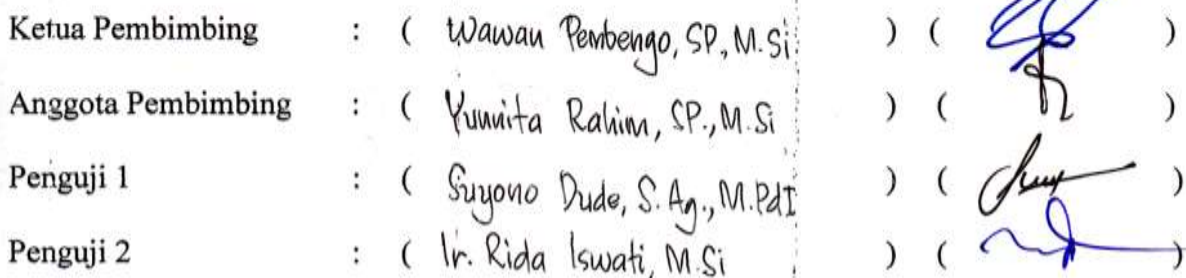 Ketua Pembimbing : ( Wawan Pembengo, SP., M.Si ) ( )
Anggota Pembimbing : ( Yunnita Rahim, SP., M.Si ) ( )
Penguji 1 : ( Suyono Dude, S.Ag., M.PdI ) ( )
Penguji 2 : ( Ir. Rida Iswati, M.Si ) ( )